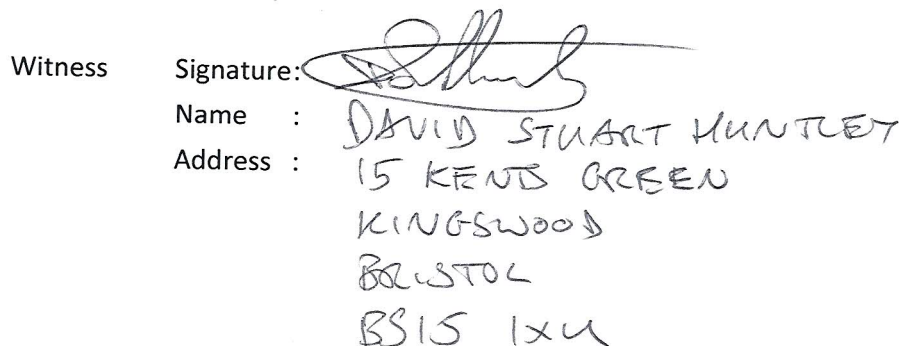 Witness Signature:
Name : DAVID STUART HUNTLEY
Address : 15 KENTS GREEN
KINGSWOOD
BRISTOL
BS15 1XU